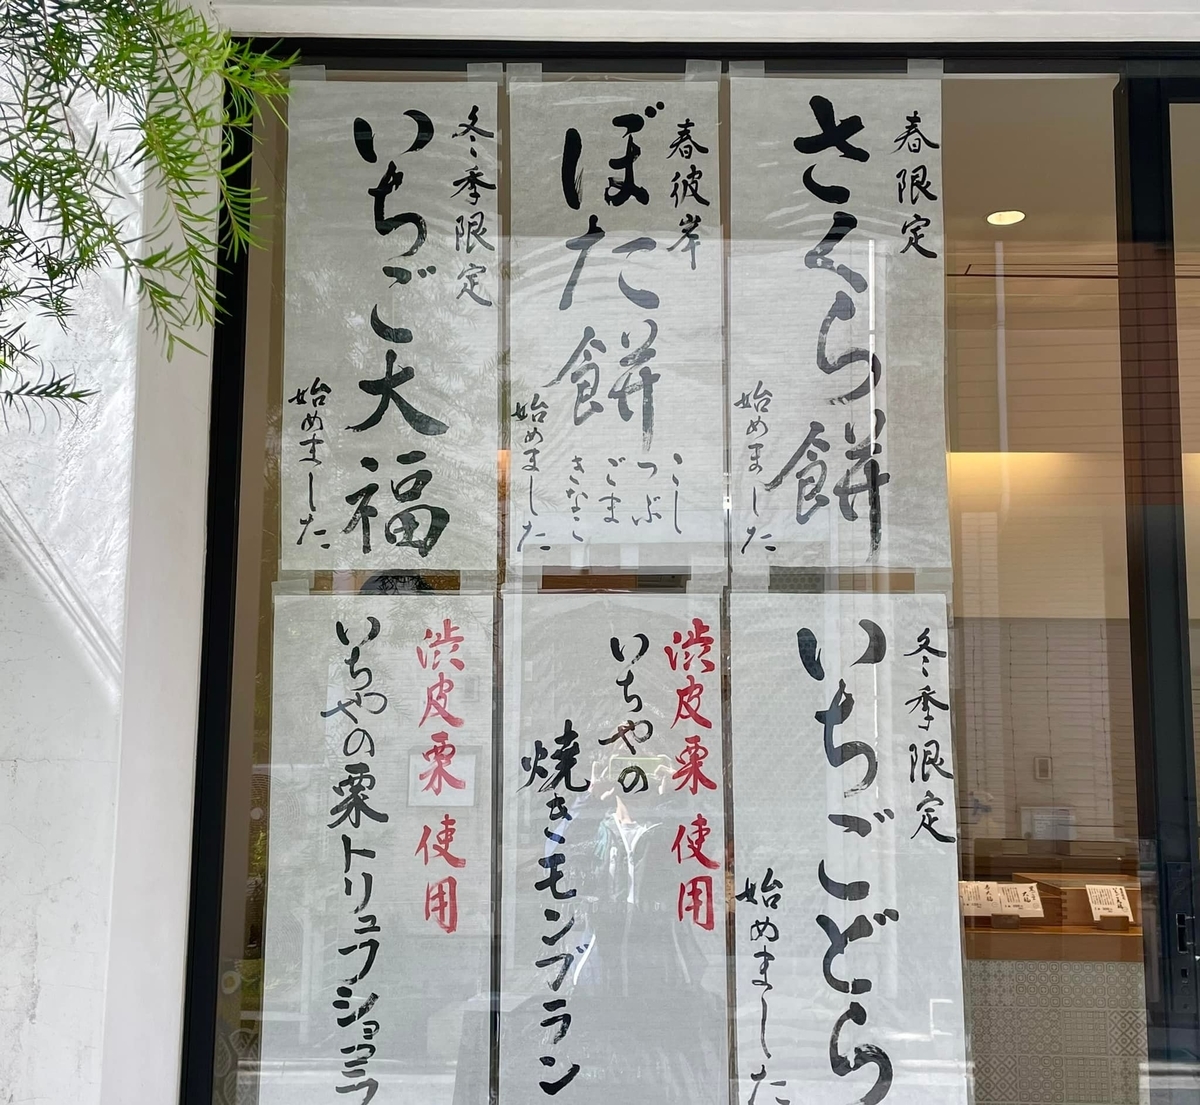 春限定
さくら餅
始めました
春彼岸
ぼた餅
こし
つぶ
ごま
きなこ
始めました
冬季限定
いちご大福
始めました
冬季限定
いちごどら
始めました
渋皮栗使用
いちやの
焼きモンブラン
渋皮栗使用
いちやの栗トリュフショコラ